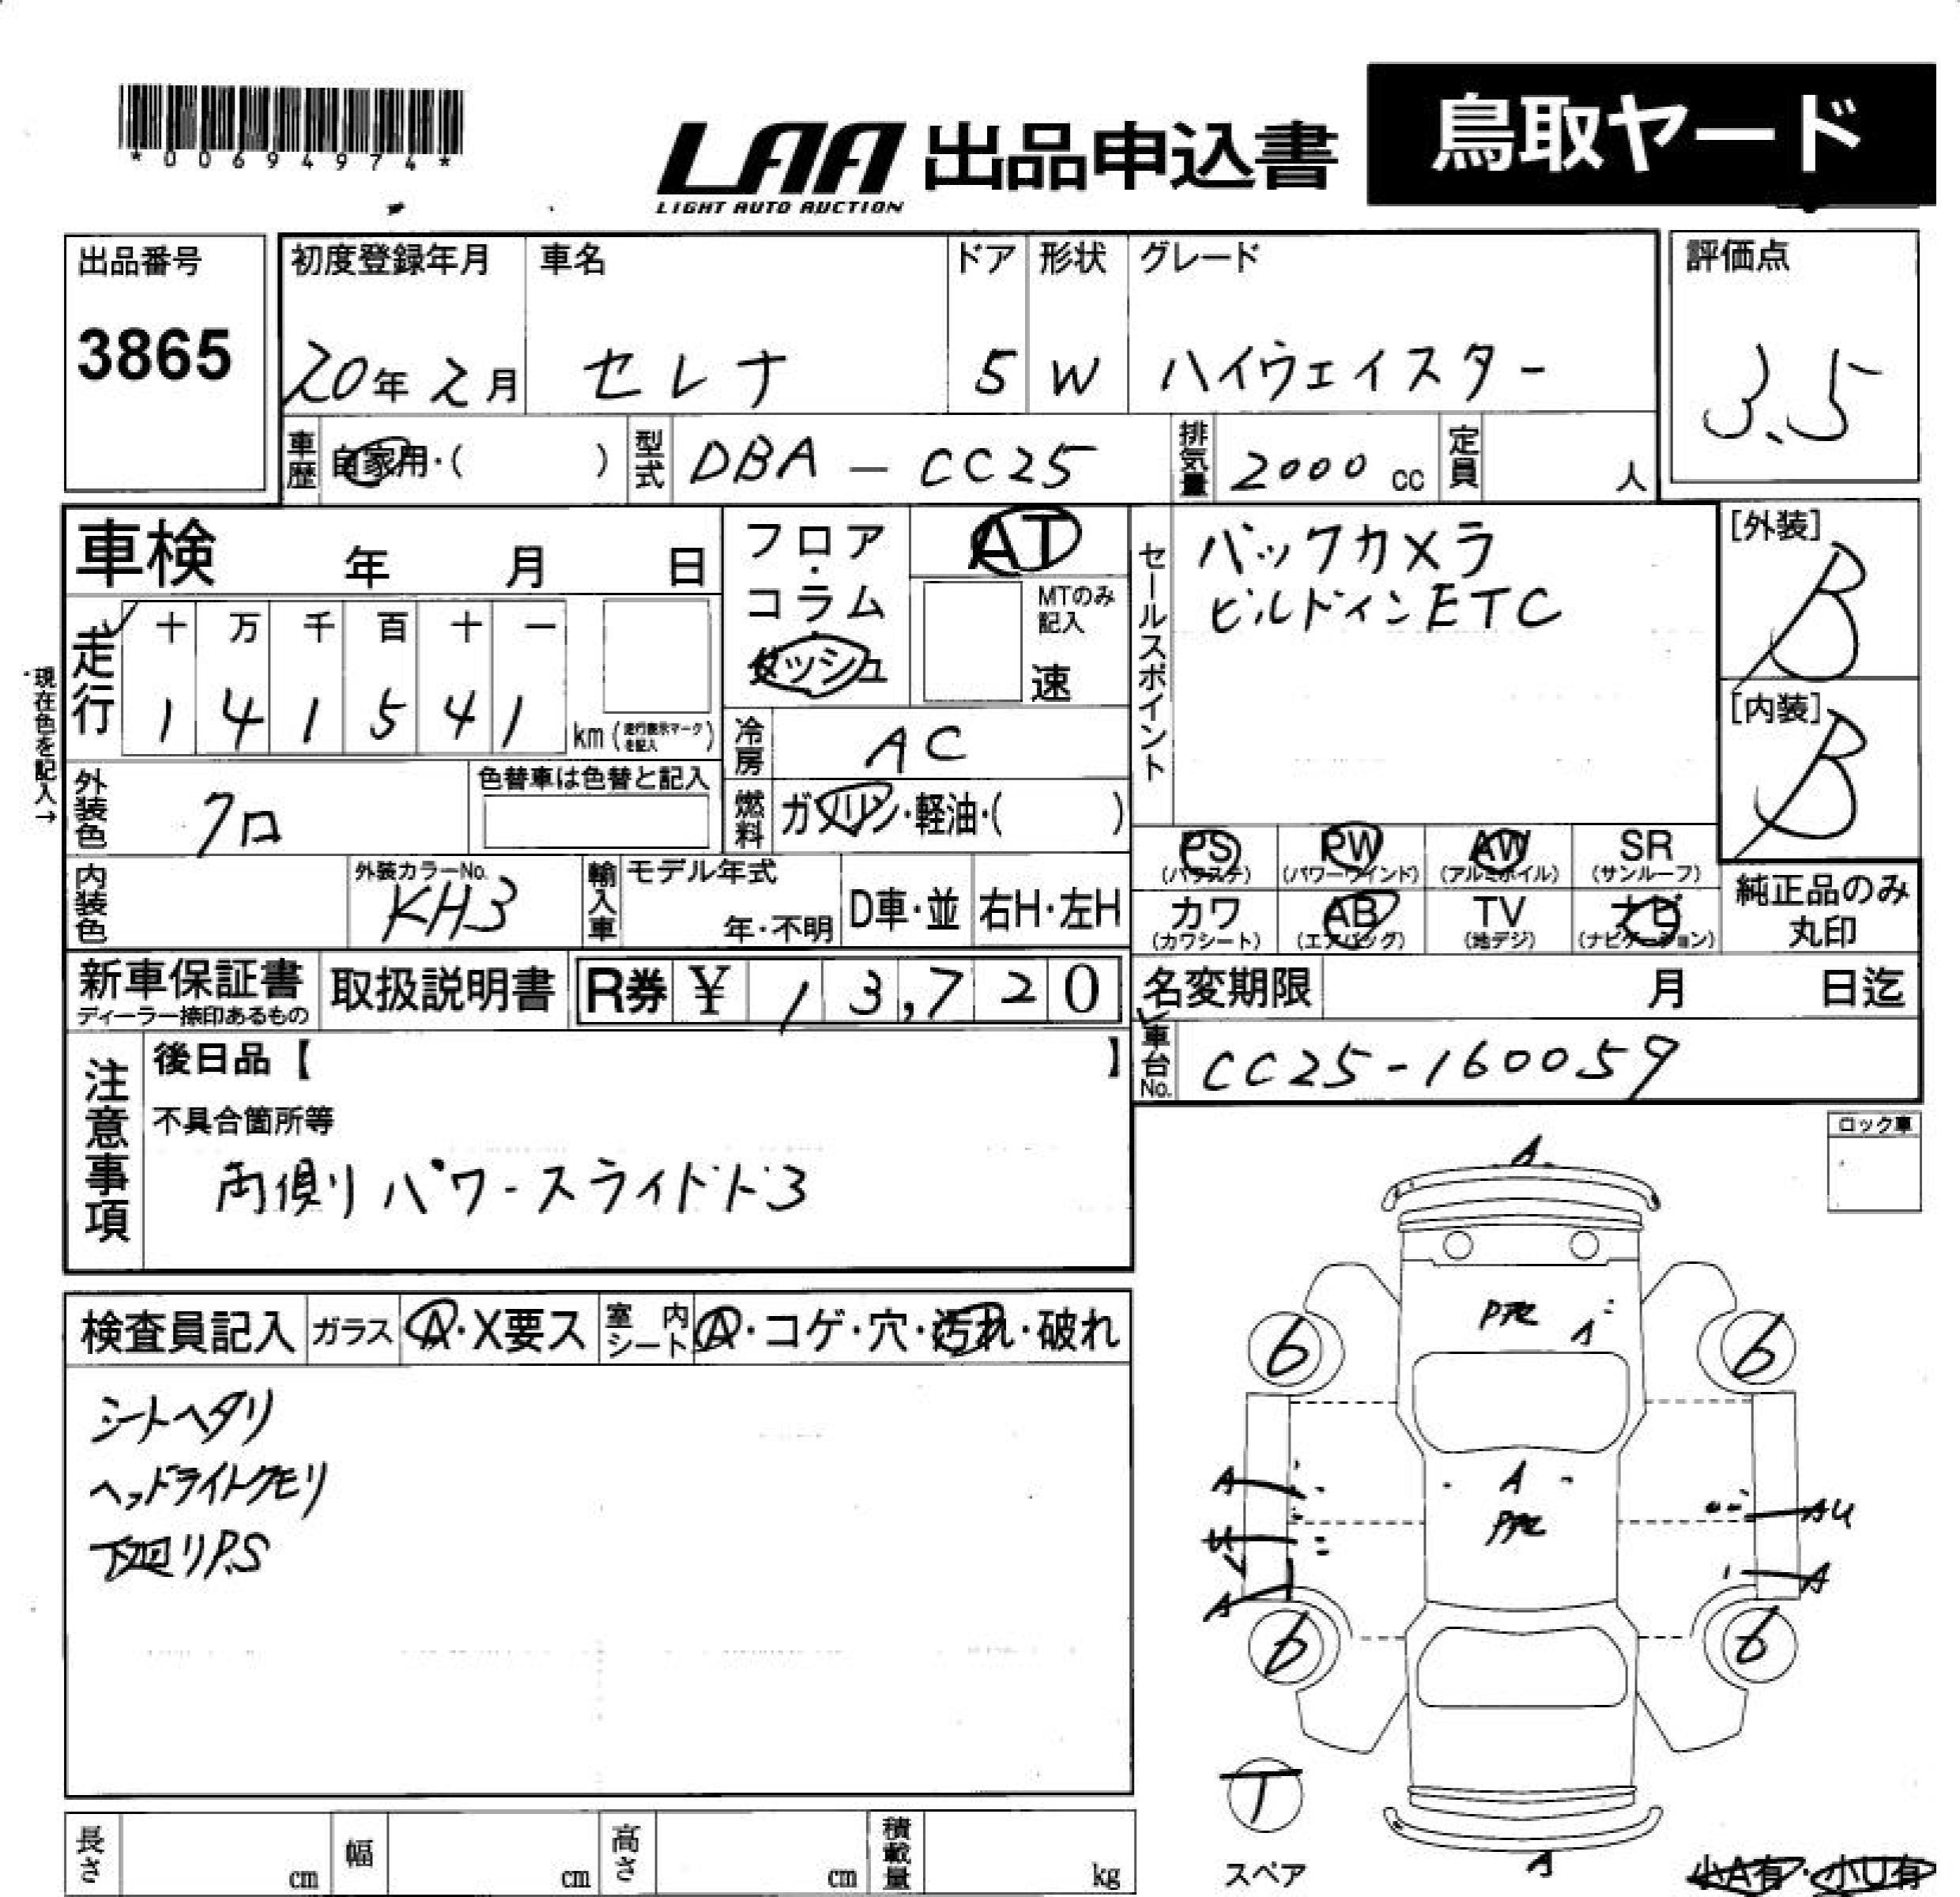 *00694974*
LAA 出品申込書 鳥取ヤード
LIGHT AUTO AUCTION
出品番号 初度登録年月 車名 ドア 形状 グレード 評価点
3865 20年2月 セレナ 5 W ハイウェイスター 3.5
車歴 自家用・( ) 型式 DBA-CC25 排気量 2000cc 定員 人
車検 年 月 日 フロア・コラム ダッシュ AT MTのみ記入 速
セールスポイント バックカメラ
ビルドインETC
[外装] B
[内装] B
現在色を記入→
走行 十 万 千 百 十 一
1 4 1 5 4 1 km (走行表示マークを記入)
冷房 AC
外装色 クロ 色替車は色替と記入 燃料 ガソリン・軽油・( )
PS (パワステ) PW (パワーウインド) AW (アルミホイル) SR (サンルーフ)
内装色 外装カラーNo. KH3 輸入車 モデル年式 年・不明 D車・並 右H・左H
カワ (カワシート) AB (エアバッグ) TV (地デジ) ナビ (ナビゲーション) 純正品のみ丸印
新車保証書 ディーラー捺印あるもの 取扱説明書 R券 ¥ 13,720 名変期限 月 日迄
車台No. CC25-160059
注意事項 後日品【 】
不具合箇所等
両側パワースライドドア
ロック車
検査員記入 ガラス A・X要ス 室内シート A・コゲ・穴・汚れ・破れ
シートヘタリ
ヘッドライトクモリ
下回りP.S
A
A
6 6
A A
AU
U
A A
6 6
T
スペア
A
小A有・小U有
長さ cm 幅 cm 高さ cm 積載量 kg